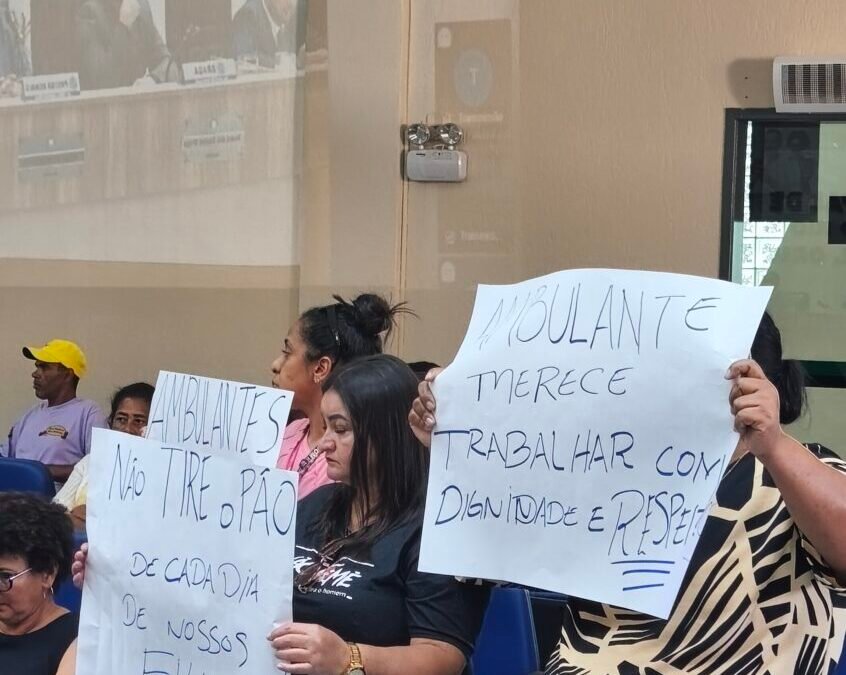 AMBULANTES
NÃO TIRE O PÃO
DE CADA DIA
DE NOSSOS
AMBULANTE
MERECE
TRABALHAR COM
DIGNIDADE E RESPEITO